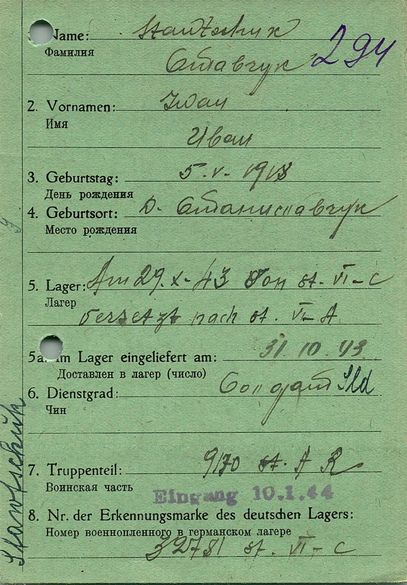 Name: Stawtschuk
Фамилия
Ставчук 294
2. Vornamen: Iwan
Имя
Иван
3. Geburtstag: 5-V-1918
День рождения
4. Geburtsort: D.
Место рождения
5. Lager: Am 29.X-43 von st. VI-C
Лагер
versetzt nach st. VI-A
5a. im Lager eingeliefert am: 31.10.43
Доставлен в лагер (число)
6. Dienstgrad: Солдат Sld
Чин
7. Truppenteil: st. A R
Воинская часть
Eingang 10.1.44
8. Nr. der Erkennungsmarke des deutschen Lagers:
Номер военнопленного в германском лагере
32781 st. VI-C